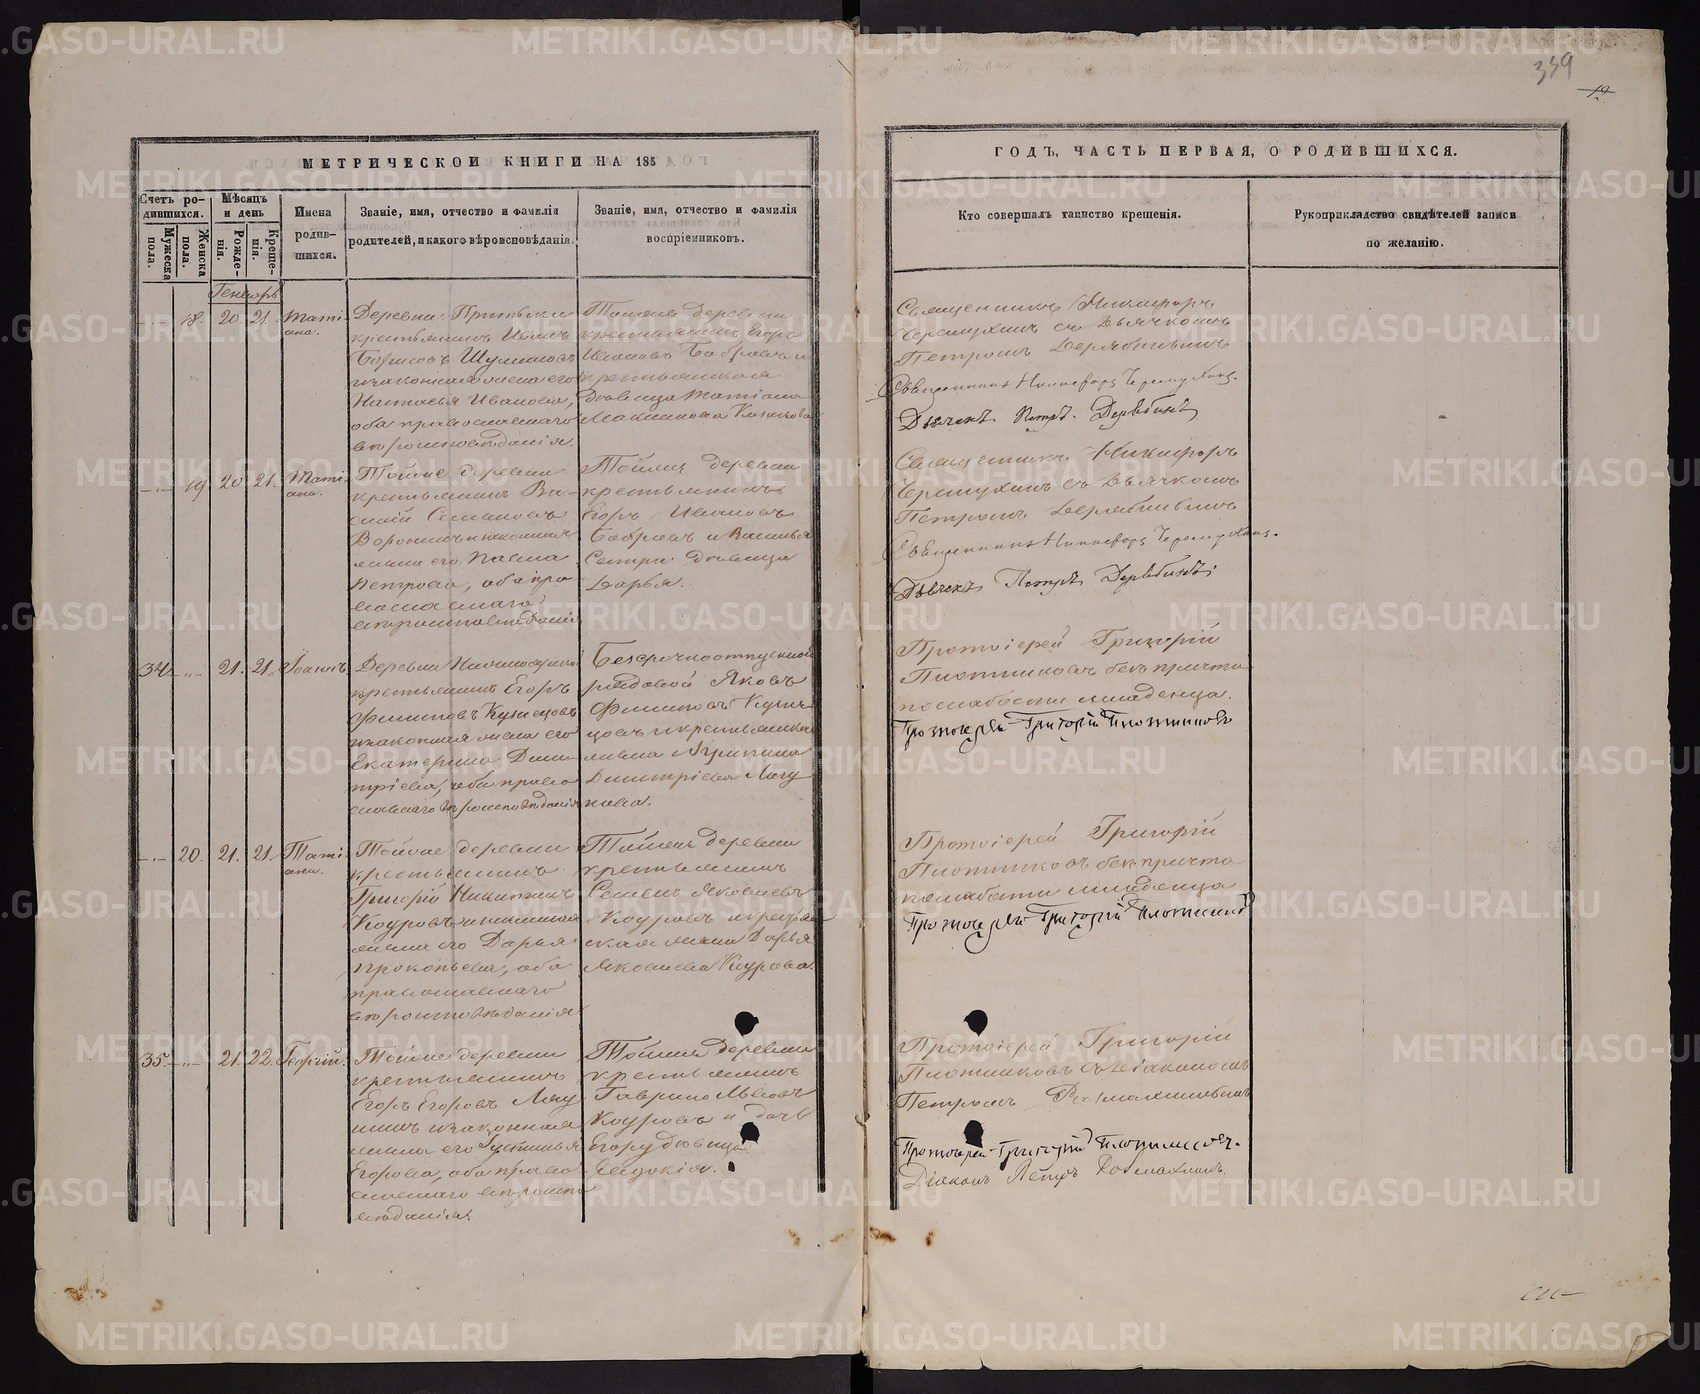 359
19
МЕТРИЧЕСКОЙ КНИГИ НА 185
Счетъ ро-
дившихся.
Мѣсяцъ
и день
Имена
родив-
шихся.
Званіе, имя, отчество и фамилія
родителей, и какого вѣроисповѣданія.
Званіе, имя, отчество и фамилія
воспріемниковъ.
Мужеска
пола.
Женска
пола.
Рожде-
нія.
Креще-
нія.
Генварь
18. 20. 21. Тати-
ана.
Деревни
крестьянинъ Иванъ
Борисовъ
и законная жена его
Настасья Иванова,
оба православнаго
вѣроисповѣданія.
Тойже деревни
крестьянинъ Егоръ
Ивановъ Бобровъ и
крестьянская
дѣвица Татіана
19. 20. 21. Тати-
ана.
Тойже деревни
крестьянинъ Ва-
силій
Воронинъ и законная
жена его
Петрова, оба пра-
вославнаго
вѣроисповѣданія
Тойже деревни
крестьянинъ
Егоръ Ивановъ
Бобровъ и
сестра дѣвица
Дарья.
34 21. 21. Іоаннъ
Деревни
крестьянинъ Егоръ
Филиповъ Кузнецовъ
и законная жена его
Екатерина Дими-
тріева, оба право-
славнаго вѣроисповѣданія
Безсрочноотпускной
рядовой Яковъ
Филиповъ Кузне-
цовъ и крестьянская
жена Агрипина
Димитріева
20. 21. 21. Тати-
ана.
Тойже деревни
крестьянинъ
Григорій Никитинъ
Коуровъ и законная
жена его Дарья
Прокопьева, оба
православнаго
вѣроисповѣданія
Тойже деревни
крестьянинъ
Семенъ Яковлевъ
Коуровъ и крестьян-
ская жена Дарья
Яковлева Коурова.
35. 21. 22. Георгій.
Тойже деревни
крестьянинъ
Егоръ Егоровъ
и законная
жена его Устинья
Егорова, оба право-
славнаго вѣроиспо-
вѣданія.
Тойже деревни
крестьянинъ
Гаврило Львовъ
Коуровъ и дочь
дѣвица
Евдокія.
ГОДЪ, ЧАСТЬ ПЕРВАЯ, О РОДИВШИХСЯ.
Кто совершалъ таинство крещенія.
Рукоприкладство свидѣтелей записи
по желанію.
Священникъ Никифоръ
Черемухинъ съ Дьячкомъ
Петромъ Дерябинымъ
Священникъ Никифоръ Черемухинъ.
Дьячекъ Петръ Дерябинъ
Священникъ Никифоръ
Черемухинъ съ Дьячкомъ
Петромъ Дерябинымъ
Священникъ Никифоръ Черемухинъ.
Дьячекъ Петръ Дерябинъ
Протоіерей Григорій
Плотниковъ безъ причта
по слабости младенца.
Протоіерей Григорій Плотниковъ
Протоіерей Григорій
Плотниковъ безъ причта
по слабости младенца
Протоіерей Григорій Плотниковъ
Протоіерей Григорій
Плотниковъ съ Діакономъ
Петромъ
Протоіерей Григорій Плотниковъ.
Діаконъ Петръ
METRIKI.GASO-URAL.RU